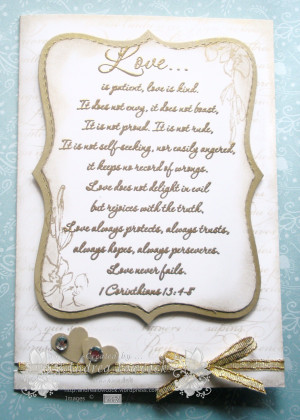 Love...
is patient, love is kind.
It does not envy, it does not boast,
It is not proud. It is not rude,
It is not self-seeking, nor easily angered,
it keeps no record of wrongs.
Love does not delight in evil
but rejoices with the truth,
Love always protects, always trusts,
always hopes, always perseveres.
Love never fails.
1 Corinthians 13:4-8
Created by
Images ©